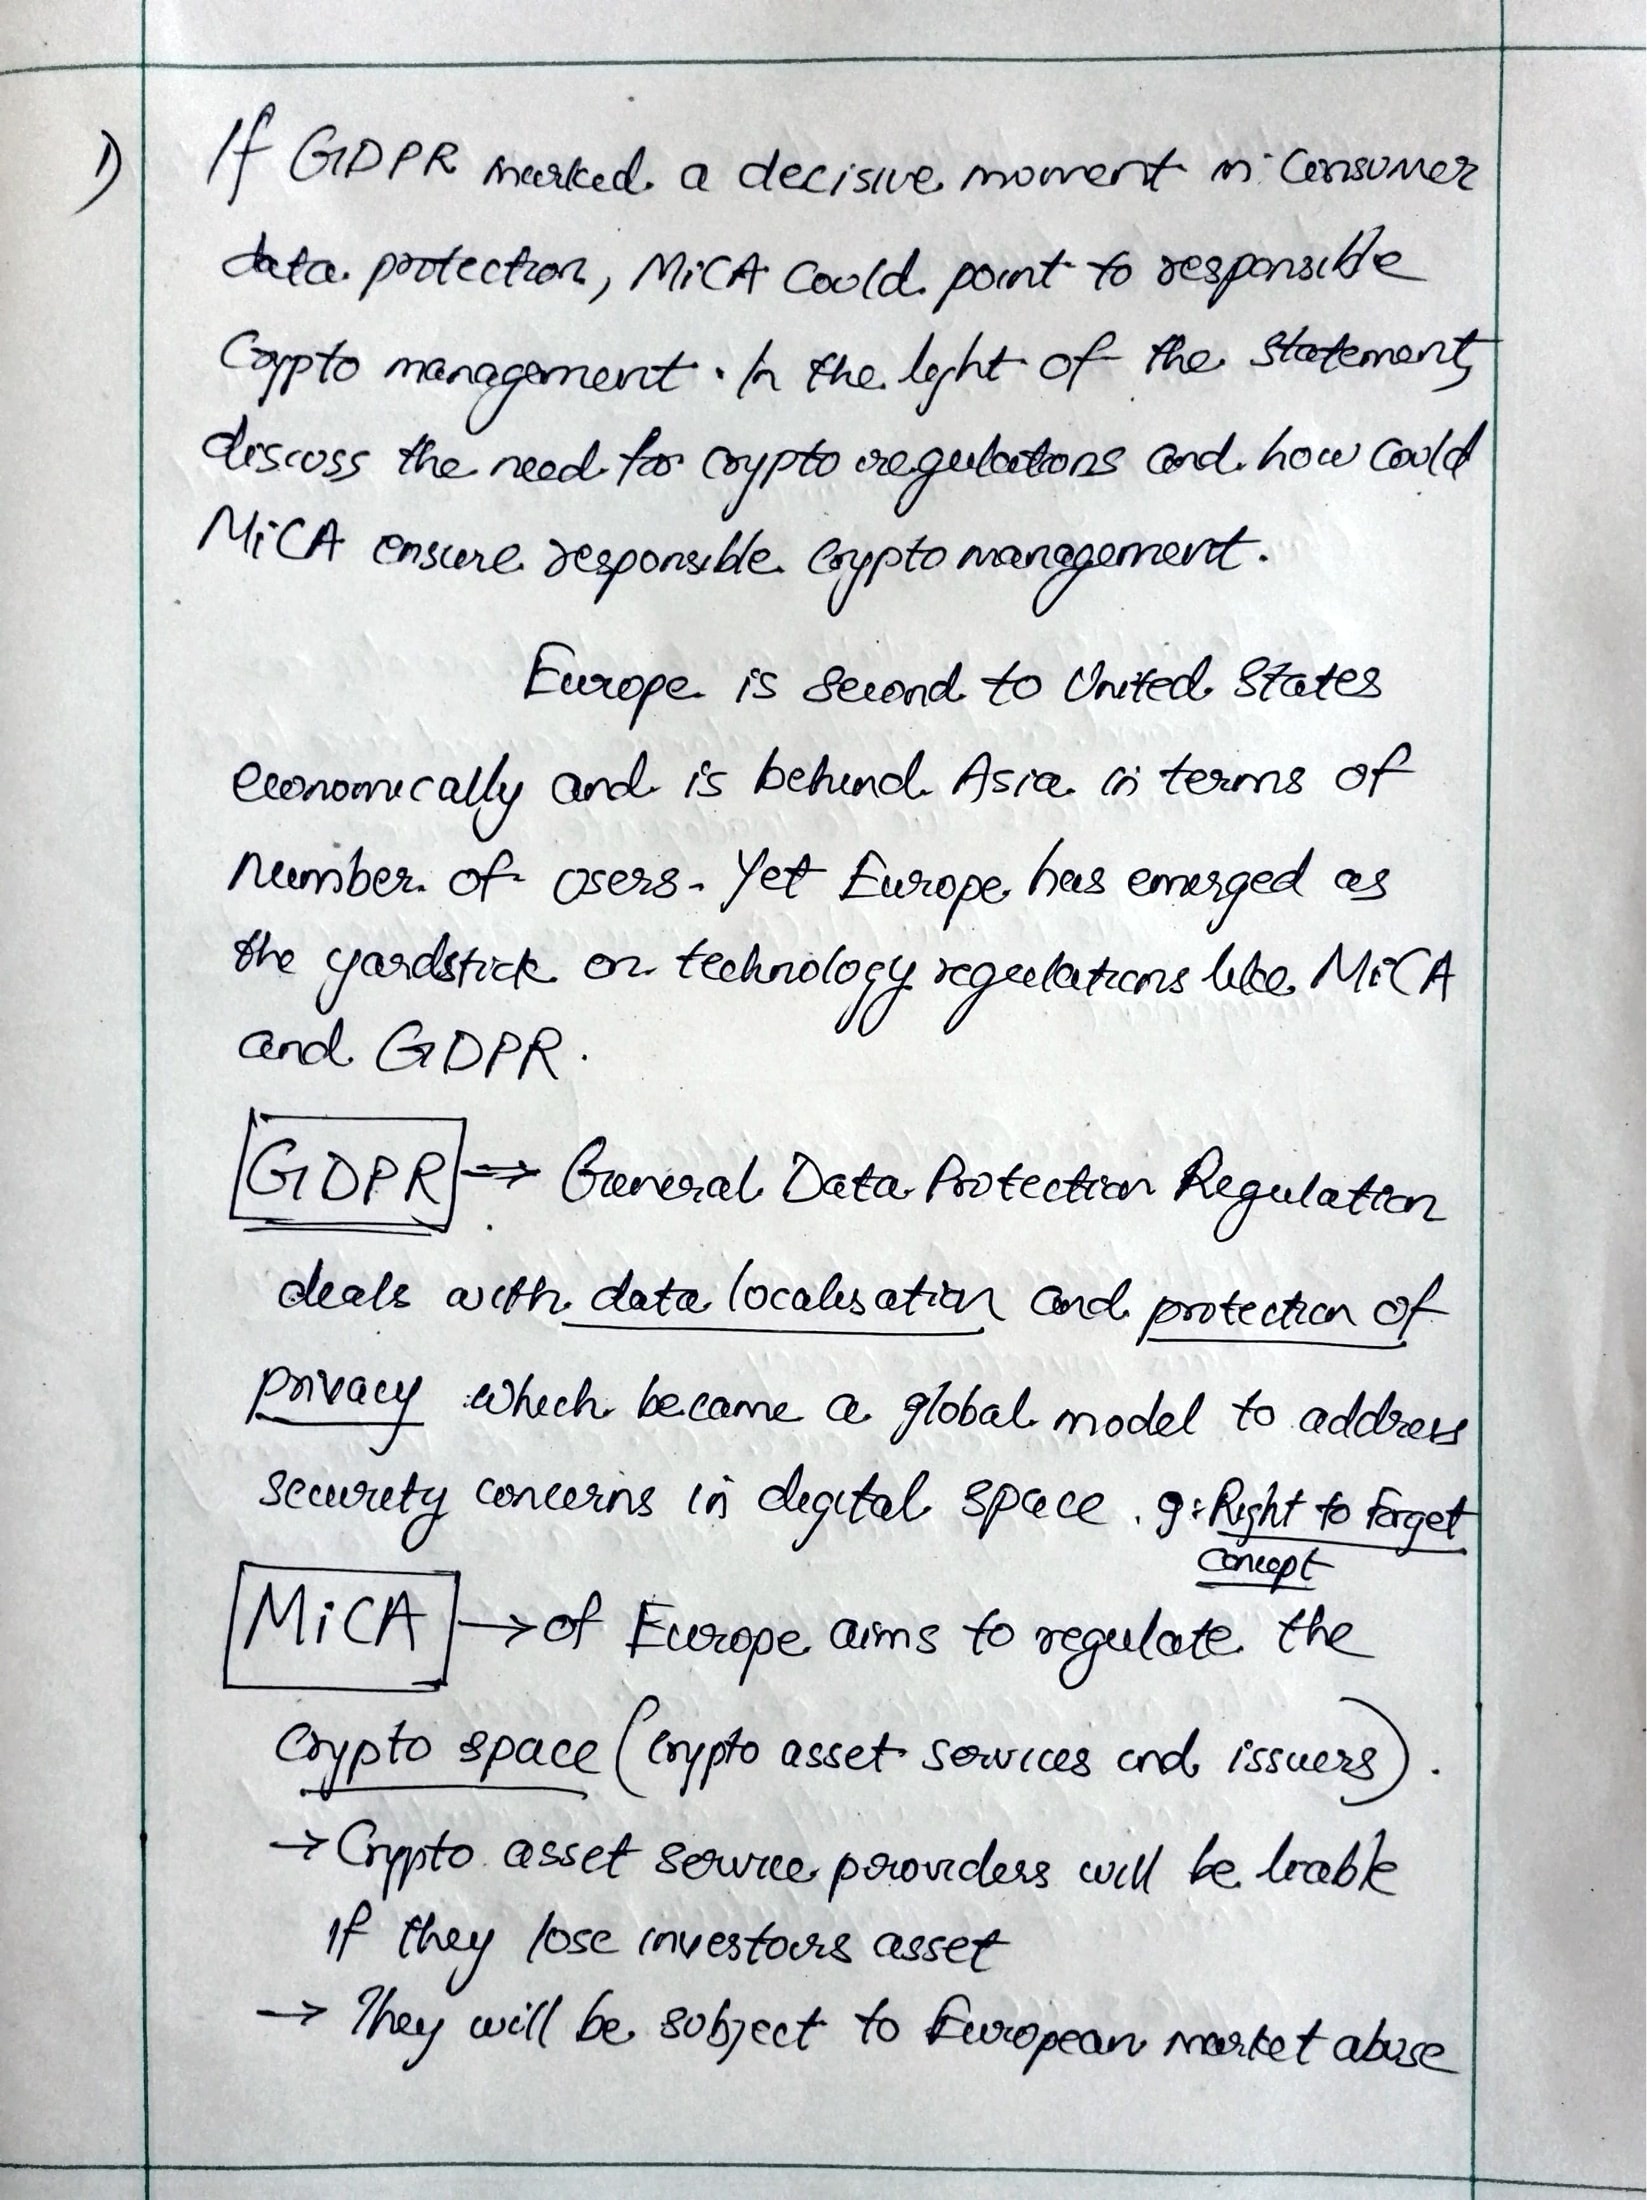 1) If GDPR marked a decisive moment in Consumer
data protection, MiCA Could point to responsible
Crypto management. In the light of the statement,
discuss the need for crypto regulations and how Could
MiCA ensure responsible Crypto management.
Europe is second to United States
economically and is behind Asia in terms of
number of users. Yet Europe has emerged as
the yardstick on technology regulations like MiCA
and GDPR.
GDPR ⇒ General Data Protection Regulation
deals with data localisation and protection of
privacy which became a global model to address
security concerns in digital space. g: Right to Forget
concept
MiCA → of Europe aims to regulate the
Crypto space (Crypto asset services and issuers).
→ Crypto asset service providers will be liable
if they lose investors asset
→ They will be subject to European market abuse